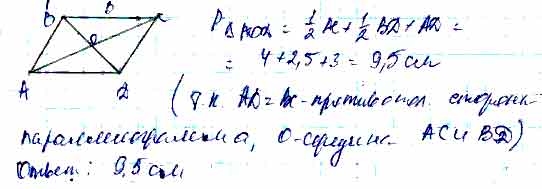 B B C
O
A D
P△AOD = 1/2 AC + 1/2 BD + AD =
= 4 + 2,5 + 3 = 9,5 см
(т.к. AD = BC - противопол. стороны
параллелограмма, O - середина AC и BD)
Ответ: 9,5 см